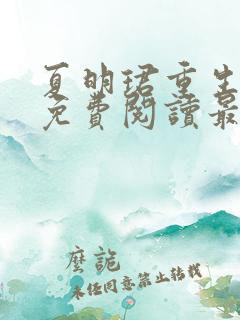 夏明珺重生
免費閱讀最
塵詭
未经同意禁止转载